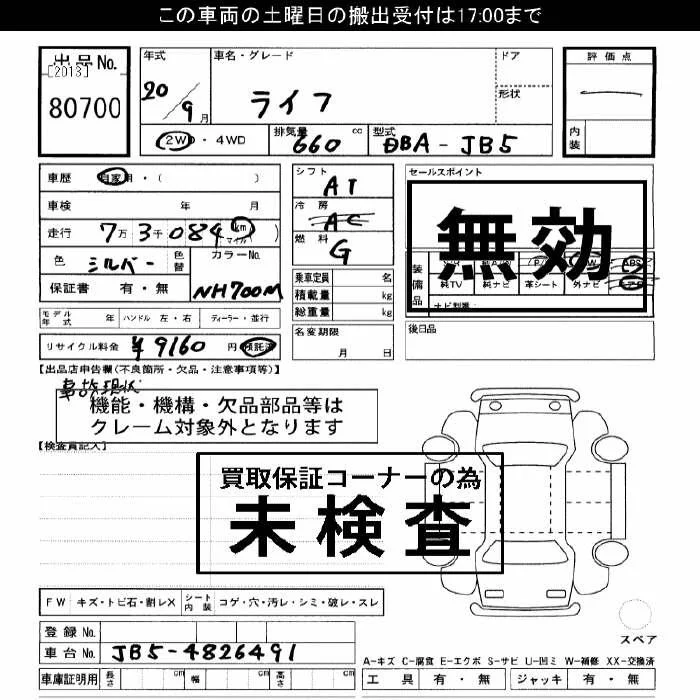 この車両の土曜日の搬出受付は17:00まで
出品No.
[2013]
80700
年式
20/9月
車名・グレード
ライフ
ドア
形状
評価点
内装
2WD・4WD
排気量 660 cc
型式 DBA-JB5
車歴 自家用・( )
車検 年 月
走行 7万3千084 km マイル
色 シルバー 色替
カラーNo. NH700M
保証書 有・無
シフト AT
冷房 AC
燃料 G
乗車定員 名
積載量 kg
総重量 kg
名変期限
月 日
セールスポイント
無効
装備品
純TV 純ナビ 革シート 外ナビ
ナビ型番:
後日品
モデル年式 年 ハンドル 左・右 ディーラー・並行
リサイクル料金 ¥9160 円 預託済
【出品店申告欄(不良箇所・欠品・注意事項等)】
事故現状
機能・機構・欠品部品等は
クレーム対象外となります
【検査員記入】
買取保証コーナーの為
未検査
FW キズ・トビ石・割レX シート内装 コゲ・穴・汚レ・シミ・破レ・スレ
スペア
登録No.
車台No. JB5-4826491
車庫証明用 長さ cm 幅 cm 高さ cm
A-キズ C-腐食 E-エクボ S-サビ U-凹ミ W-補修 XX-交換済
工具 有・無 ジャッキ 有・無